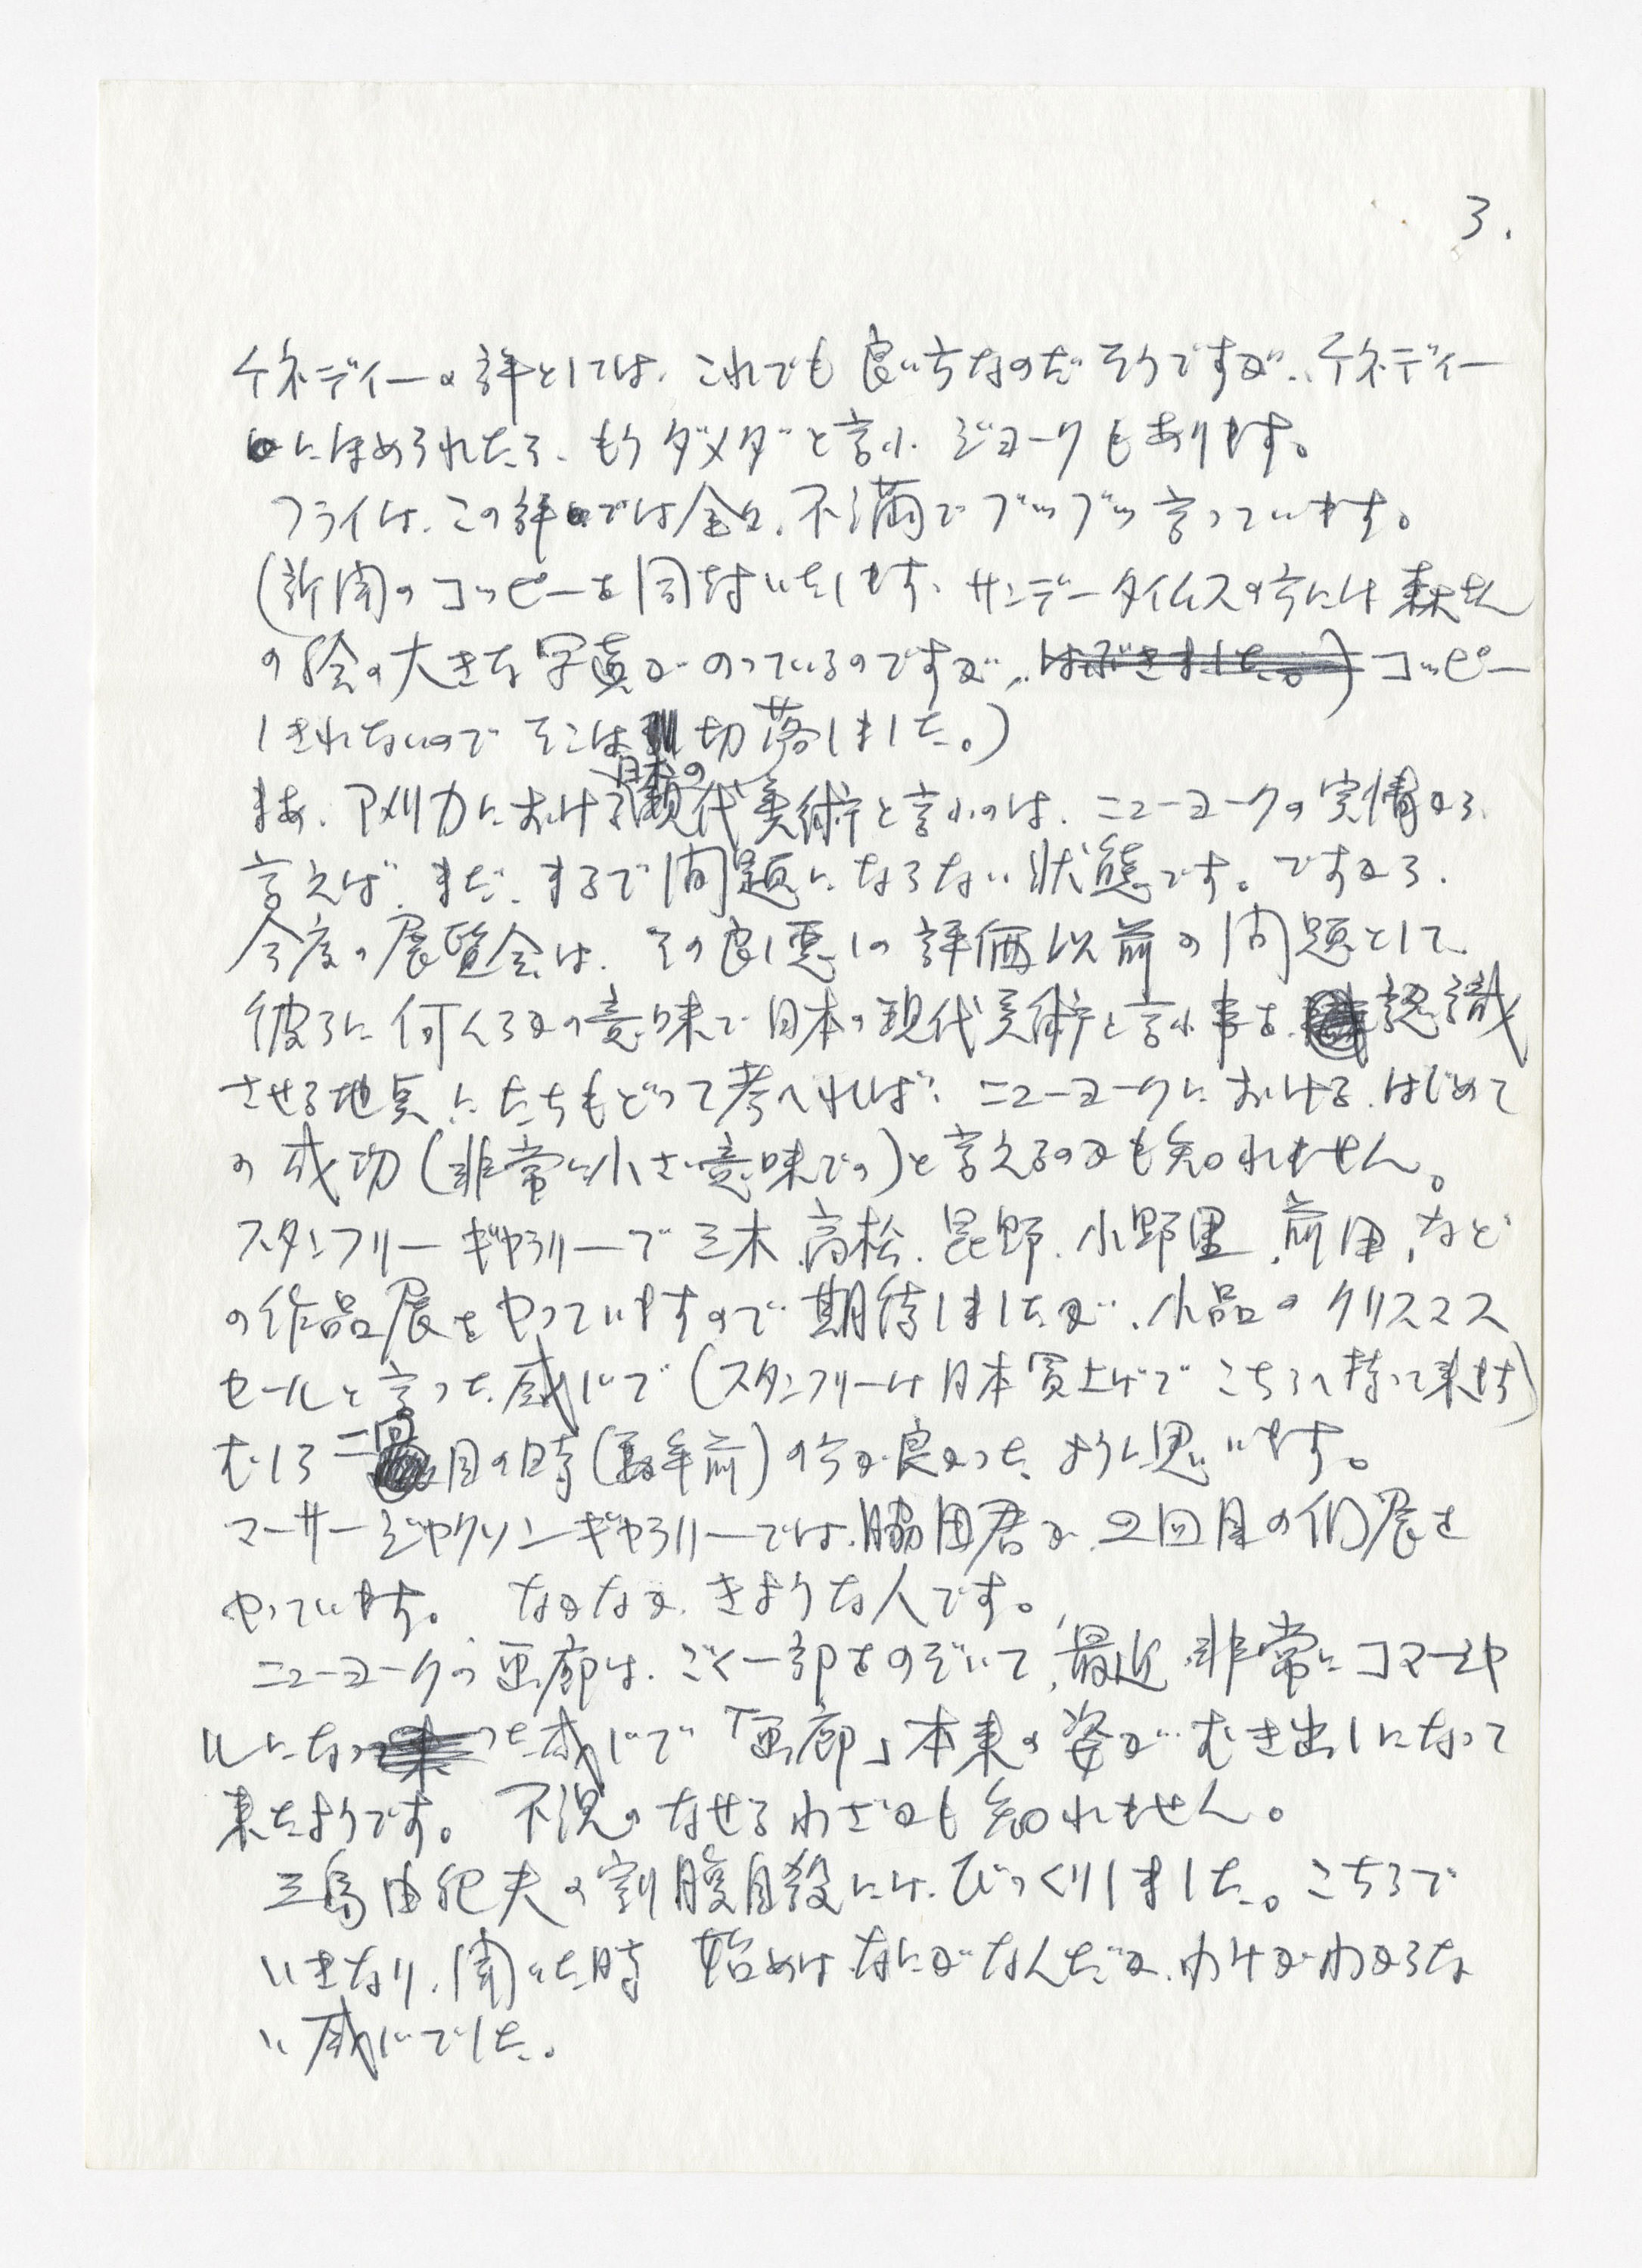 3.
ケネディーの評としては、これでも良い方なのだそうですが、ケネディー
にほめられたら、もうダメダと言ふジョークもあります。
フライは、この評では全々、不満でブツブツ言っています。
(新聞のコッピーを同封いたします、サンデータイムスの方には森さん
の絵の大きな写真がのっているのですが、はぶきました。)コッピー
しきれないのでそこは切落しました。)
まあ、アメリカにおける日本の現代美術と言ふのは、ニューヨークの実情から
言えば、まだ、まるで問題にならない状態です。ですから、
今度の展覧会は、その良し悪しの評価以前の問題として、
彼らに何んらかの意味で日本の現代美術と言ふ事を、認識
させる地点にたちもどって考へれば、ニューヨークにおける、はじめて
の成功(非常に小さい意味での)と言えるのかも知れません。
スタンフリーギャラリーで三木、高松、昆野、小野里、前田、など
の作品展をやっていますので期待しましたが、小品のクリスマス
セールと言った感じで(スタンフリーは日本買上げでこちらへ持って来ます)
むしろ二回目の時(数年前)の方が良かったように思います。
マーサージャクソンギャラリーでは、脇田君が、2回目の個展を
やっています。 なかなか、きような人です。
ニューヨークの画廊は、ごく一部をのぞいて、最近、非常にコマーシャ
ルになった感じで「画廊」本来の姿が、むき出しになって
来たようです。 不況のなせるわざかも知れません。
三島由紀夫の割腹自殺には、びっくりしました。こちらで
いきなり、聞いた時 始めは、なにがなんだか、わけがわからな
い感じでした。